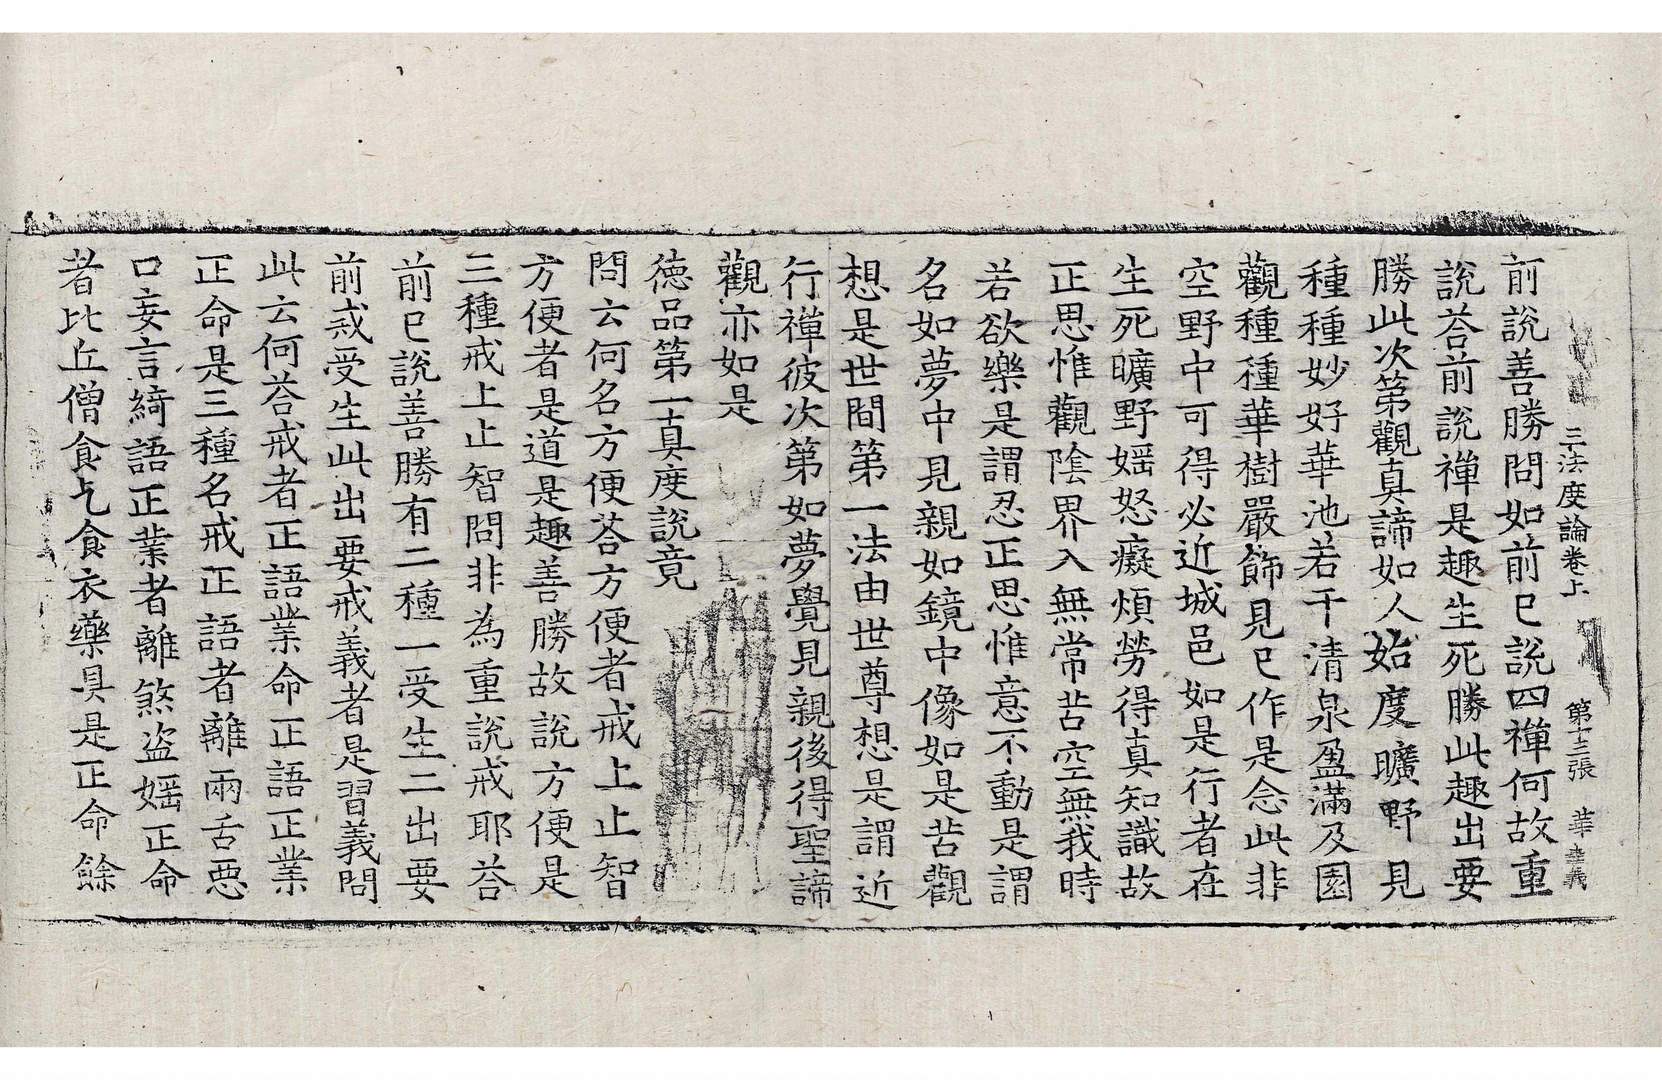 三法度論卷上　第十三張　華
前說善勝問如前已說四禪何故重
說荅前說禪是趣生死勝此趣出要
勝此次第觀真諦如人始度曠野見
種種妙好華池若干清泉盈滿及園
觀種種華樹嚴飾見已作是念此非
空野中可得必近城邑如是行者在
生死曠野婬怒癡煩勞得真知識故
正思惟觀陰界入無常苦空無我時
若欲樂是謂忍正思惟意不動是謂
名如夢中見親如鏡中像如是苦觀
想是世間第一法由世尊想是謂近
行禪彼次第如夢覺見親後得聖諦
觀亦如是
德品第一真度說竟
問云何名方便荅方便者戒上止智
方便者是道是趣善勝故說方便是
三種戒上止智問非為重說戒耶荅
前已說善勝有二種一受生二出要
前戒受生此出要戒義者是習義問
此云何荅戒者正語業命正語正業
正命是三種名戒正語者離兩舌惡
口妄言綺語正業者離煞盜婬正命
者比丘僧食乞食衣藥具是正命餘